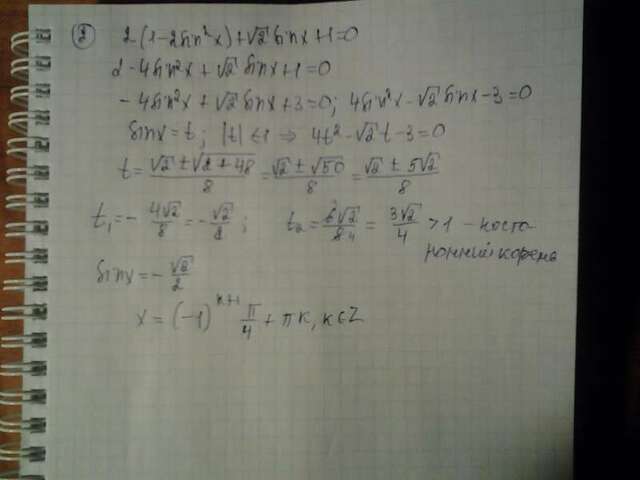 ② 2(1-2sin²x)+√2 sinx+1=0
2-4sin²x+√2 sinx+1=0
-4sin²x+√2 sinx+3=0; 4sin²x-√2 sinx-3=0
sinx=t; |t|≤1 ⇒ 4t²-√2 t-3=0
t=(√2±√(2+48))/8=(√2±√50)/8=(√2±5√2)/8
t₁=-4√2/8=-√2/2; t₂=6√2/8=3√2/4>1 - посто-
ронний корень
sinx=-√2/2
x=(-1)^(k+1) π/4+πk, k∈Z